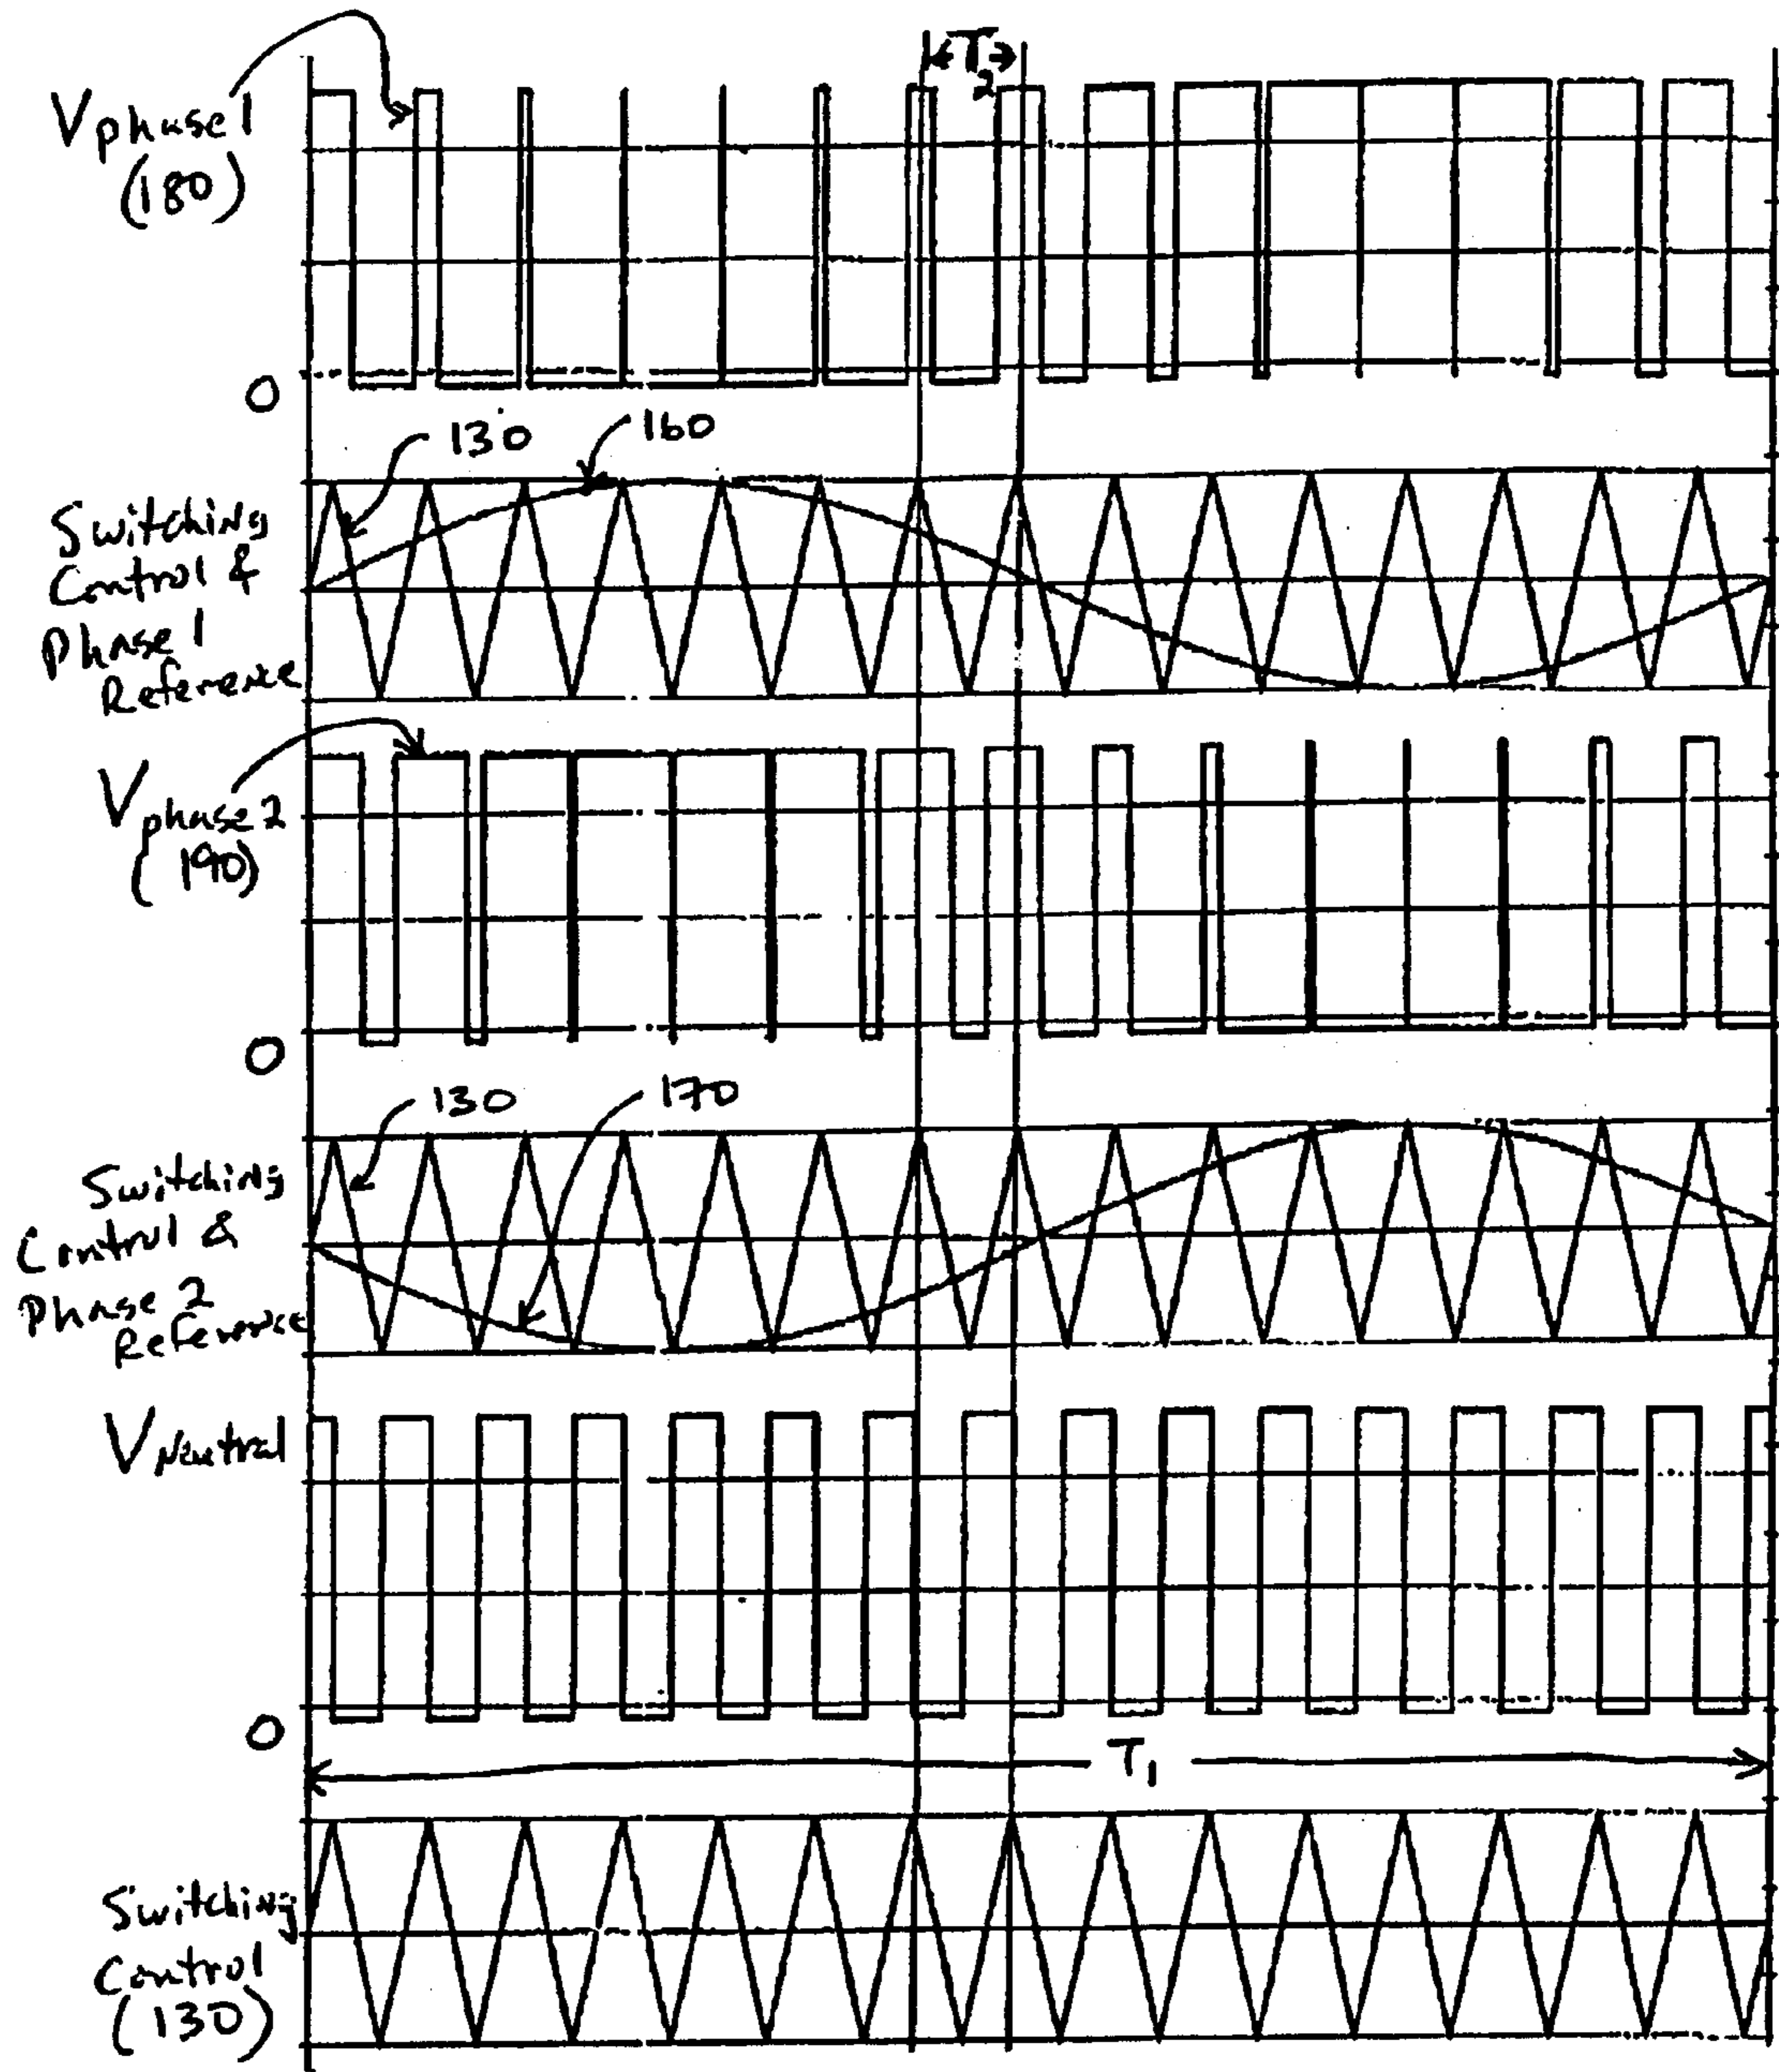 T2
Vphase1
(180)
0
130
160
Switching
Control &
Phase 1
Reference
Vphase2
(190)
0
130
170
Switching
Control &
Phase 2
Reference
VNeutral
0
T1
Switching
Control
(130)